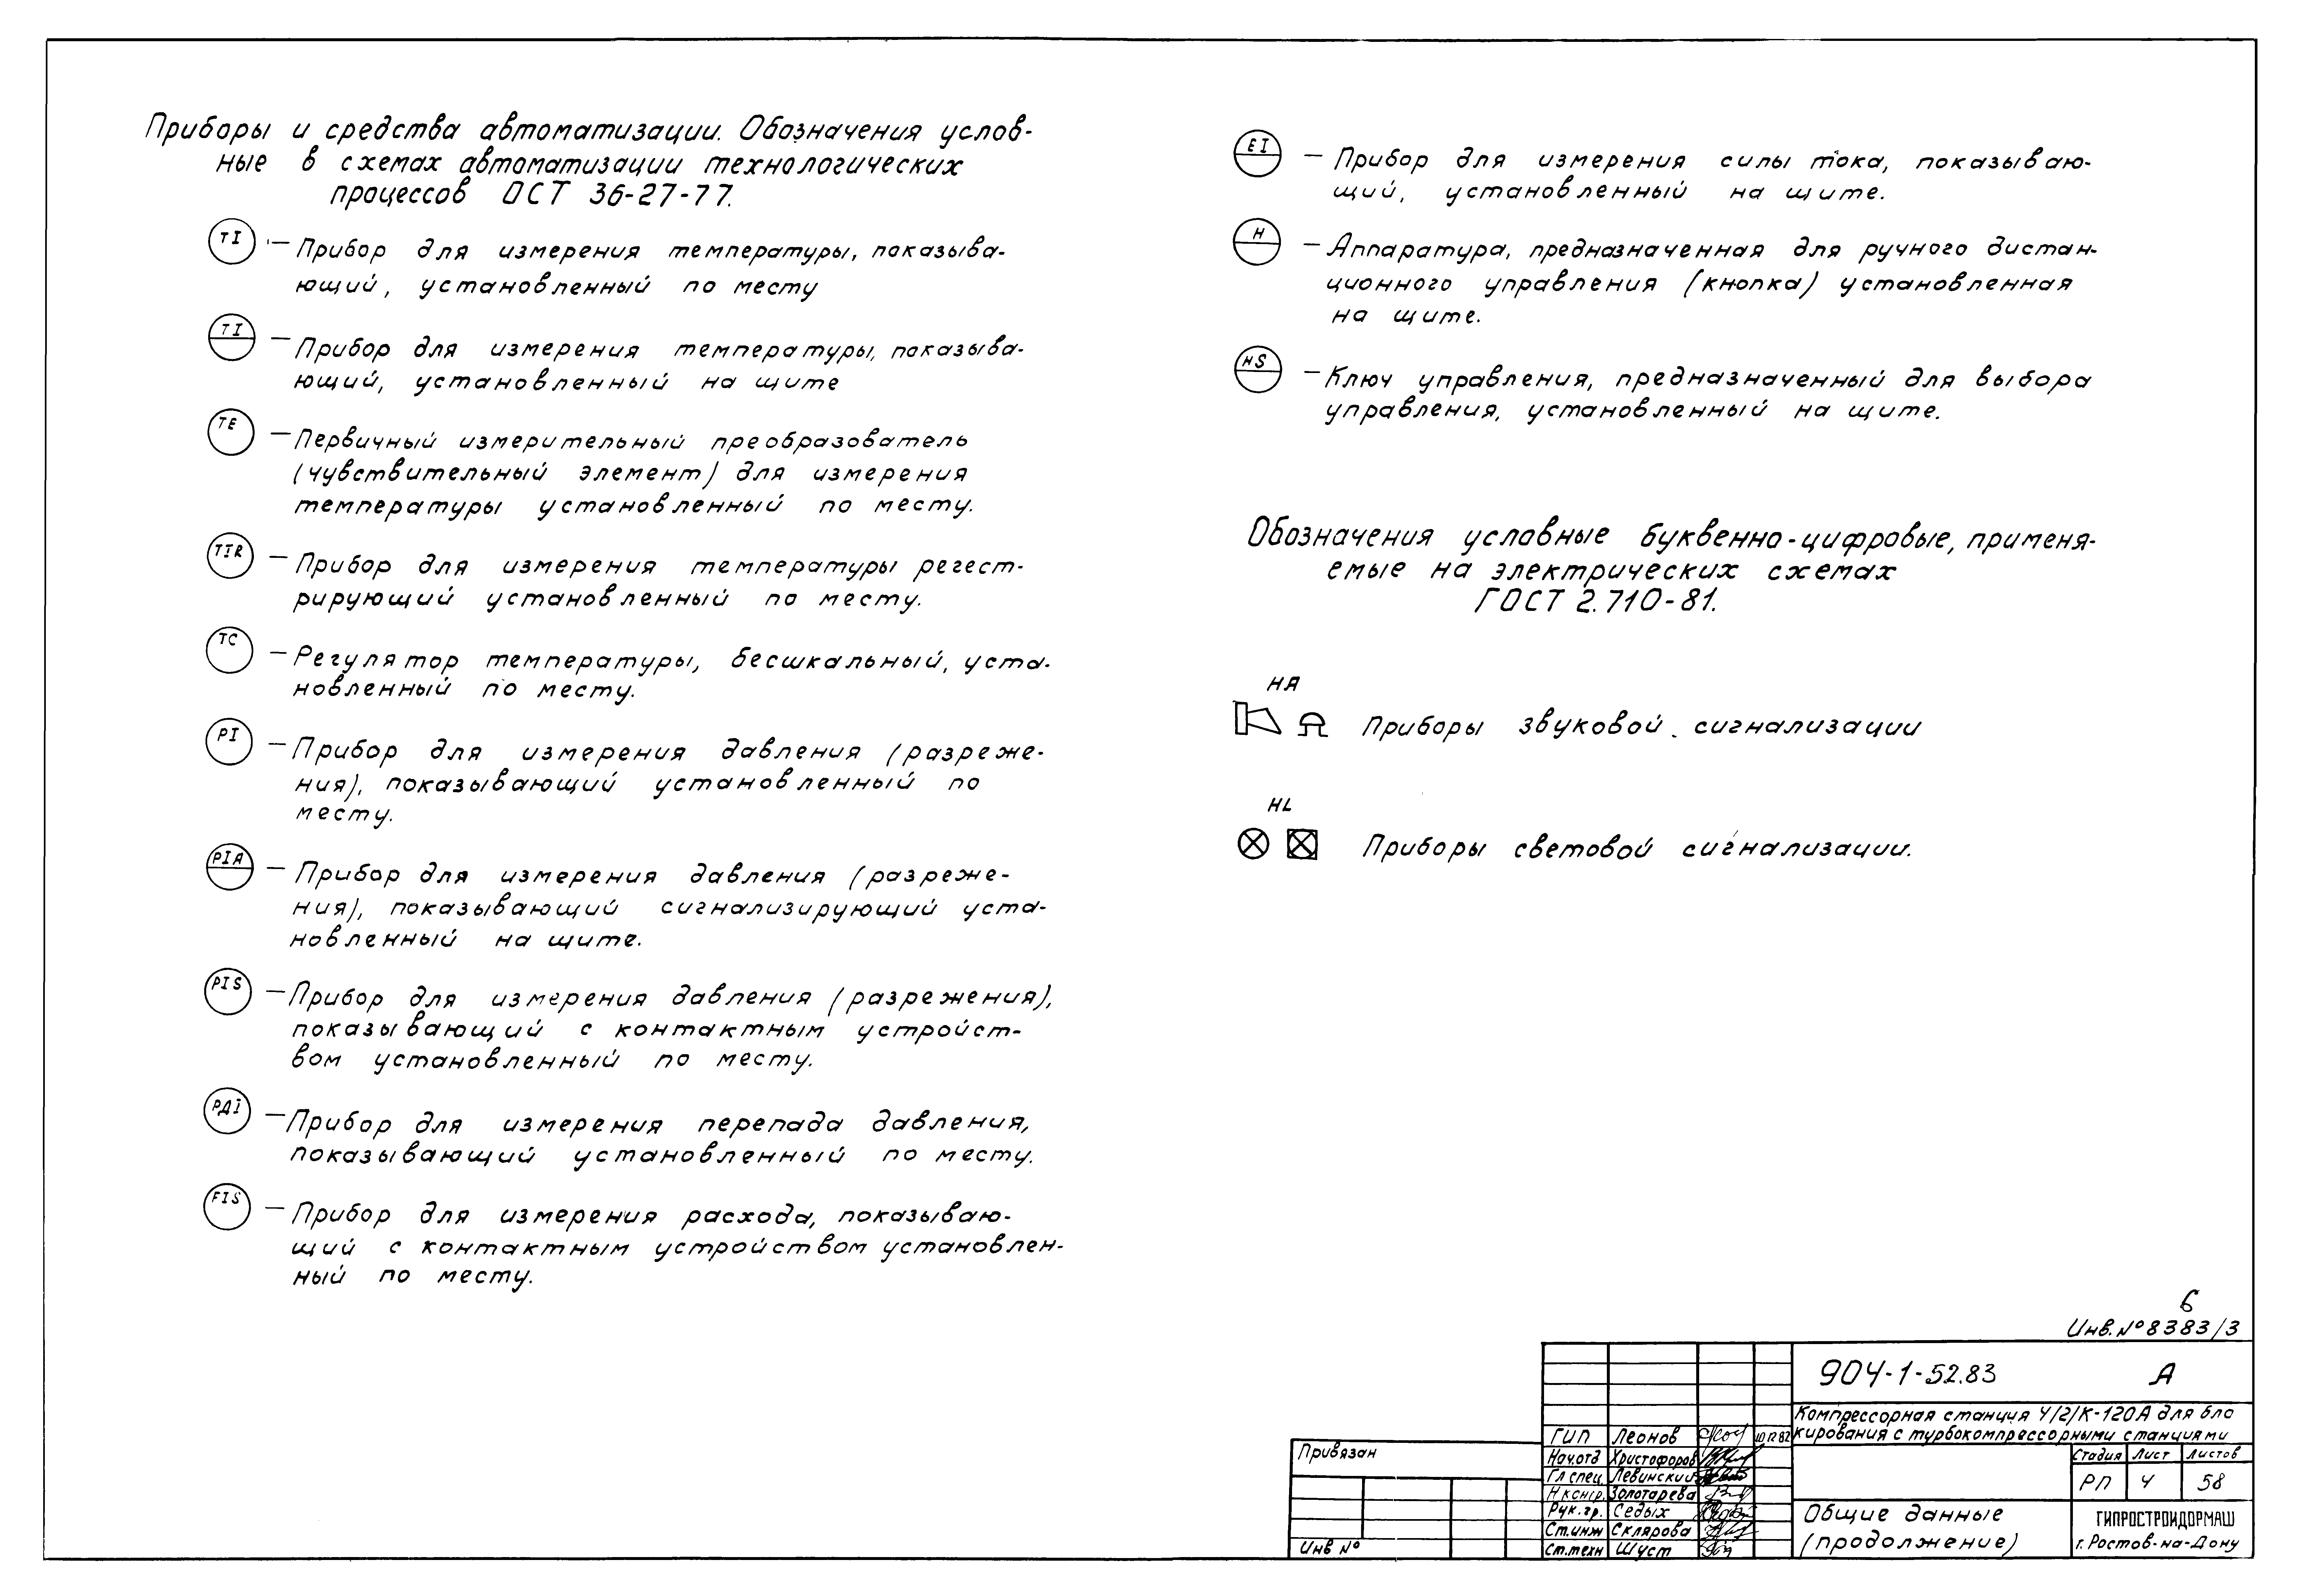 Приборы и средства автоматизации. Обозначения услов-
ные в схемах автоматизации технологических
процессов ОСТ 36-27-77.
TI — Прибор для измерения температуры, показыва-
ющий, установленный по месту
TI — Прибор для измерения температуры, показыва-
ющий, установленный на щите
TE — Первичный измерительный преобразователь
(чувствительный элемент) для измерения
температуры установленный по месту.
TIR — Прибор для измерения температуры регест-
рирующий установленный по месту.
TC — Регулятор температуры, бесшкальный, уста-
новленный по месту.
PI — Прибор для измерения давления (разреже-
ния), показывающий установленный по
месту.
PIA — Прибор для измерения давления (разреже-
ния), показывающий сигнализирующий уста-
новленный на щите.
PIS — Прибор для измерения давления (разрежения),
показывающий с контактным устройст-
вом установленный по месту.
РДI — Прибор для измерения перепада давления,
показывающий установленный по месту.
FIS — Прибор для измерения расхода, показываю-
щий с контактным устройством установлен-
ный по месту.
EI — Прибор для измерения силы тока, показываю-
щий, установленный на щите.
H — Аппаратура, предназначенная для ручного дистан-
ционного управления (кнопка) установленная
на щите.
HS — Ключ управления, предназначенный для выбора
управления, установленный на щите.
Обозначения условные буквенно-цифровые, применя-
емые на электрических схемах
ГОСТ 2.710-81.
HA
Приборы звуковой сигнализации
HL
Приборы световой сигнализации.
6
Инв. № 8383/3
904-1-52.83 А
Компрессорная станция 4/2/К-120А для бло
кирования с турбокомпрессорными станциями
Стадия Лист Листов
РП 4 58
Общие данные
(продолжение)
ГИПРОСТРОЙДОРМАШ
г. Ростов-на-Дону
ГИП Леонов
Нач.отд Христофоров
Гл спец. Левинский
Н контр. Золотарева
Рук. гр. Седых
Ст.инж Склярова
Ст.техн Шуст
Привязан
Инв №